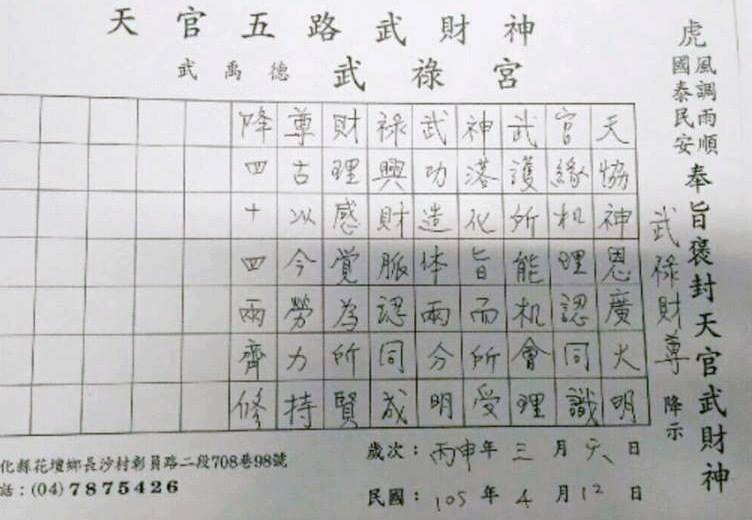 天官五路武財神
武禹德 武祿宮
虎
風調雨順
國泰民安
奉旨褒封天官武財神
武祿財尊 降示
天協神恩廣火明
官緣机理認同識
武護所能机會理
神落化旨而所受
武功造体兩分明
祿興財脈認同成
財理感覺為所賢
尊古以今勞力持
降四十四兩齊修
歲次：丙申年三月六日
民國：105年4月12日
化縣花壇鄉長沙村彰員路二段708巷98號
話：(04)7875426